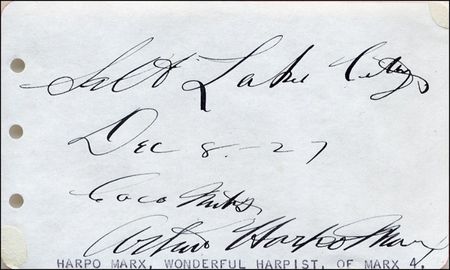 Salt Lake City
Dec 8 - 27
Coco Nuts
Arthur Harpo Marx
HARPO MARX, WONDERFUL HARPIST, OF MARX 4.